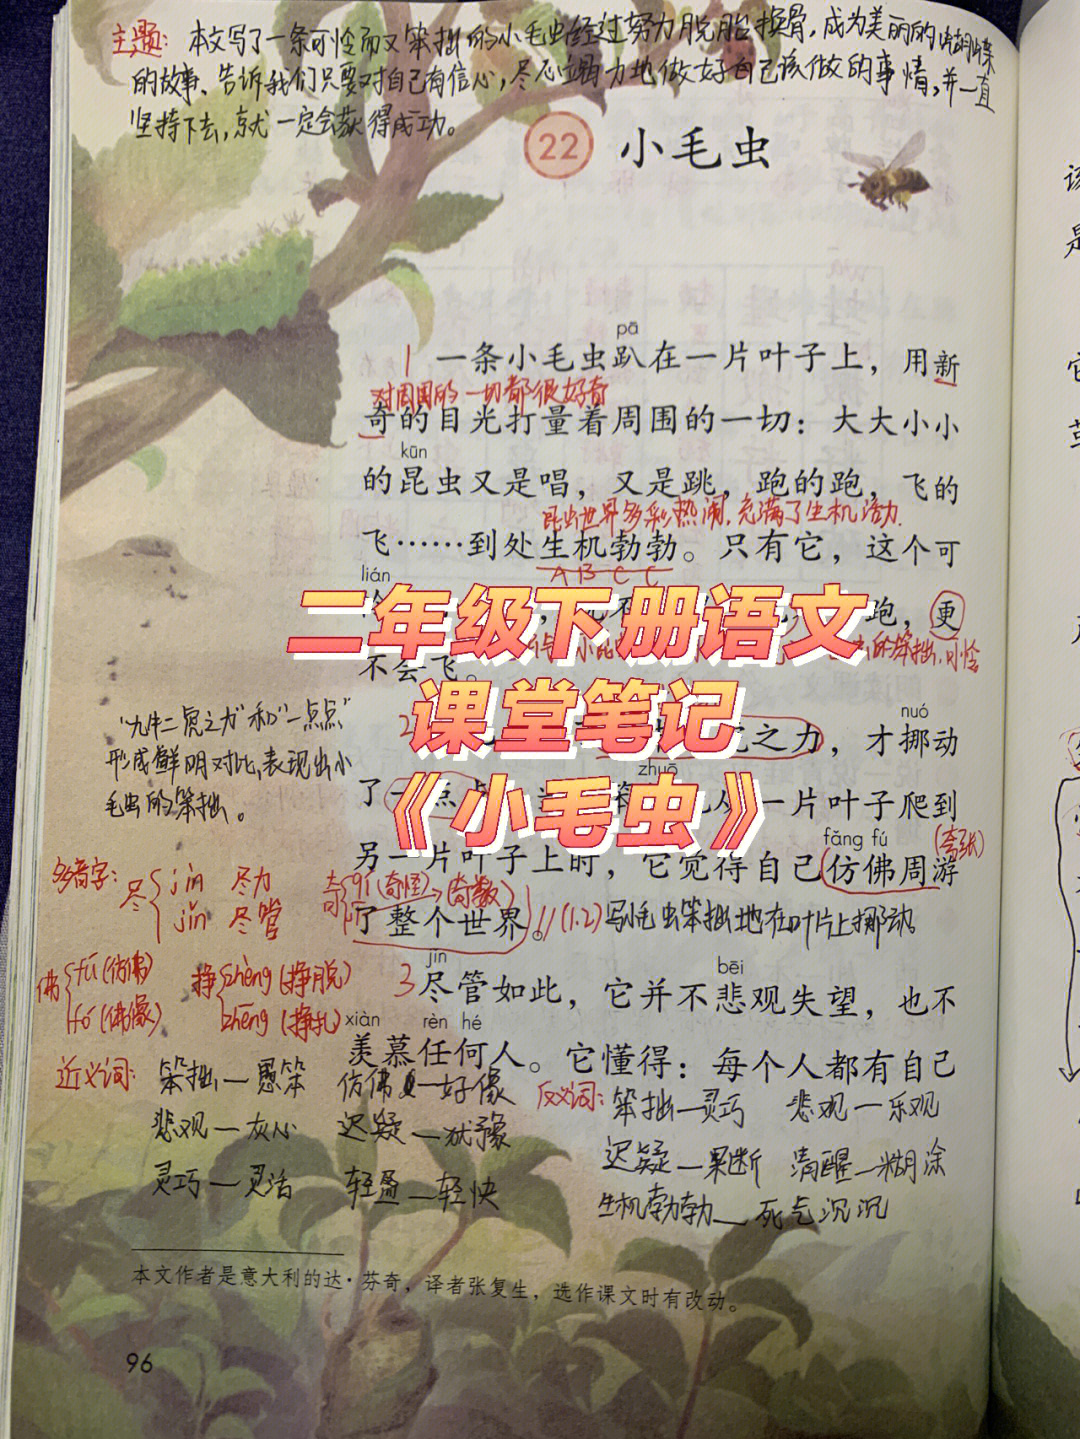 主题: 本文写了一条可怜而又笨拙的小毛虫经过努力脱胎换骨,成为美丽的蝴蝶
的故事、告诉我们只要对自己有信心,尽心竭力地做好自己该做的事情,并一直
坚持下去,就一定会获得成功。
22 小毛虫
pā
1 一条小毛虫趴在一片叶子上，用新
对周围的一切都很好奇
奇的目光打量着周围的一切：大大小小
kūn
的昆虫又是唱，又是跳，跑的跑，飞的
昆虫世界多彩热闹,充满了生机活力.
飞……到处生机勃勃。只有它，这个可
A B C C
lián
跑，更
的笨拙,可怜
不会飞。
二年级下册语文
课堂笔记
《小毛虫》
"九牛二虎之力"和"一点点"
形成鲜明对比,表现出小
毛虫的笨拙。
nuó
2 之力，才挪动
zhuō
了一点点 一片叶子爬到
fǎng fú
(夸张)
另一片叶子上时，它觉得自己仿佛周游
了整个世界。
(1.2)写小毛虫笨拙地在叶片上挪动
多音字:
尽 jìn 尽力
jǐn 尽管
奇 qí (奇怪)
(奇数)
佛 fú (仿佛)
fó (佛像)
挣 zhèng (挣脱)
zhēng (挣扎)
jǐn bēi
3 尽管如此，它并不悲观失望，也不
xiàn rèn hé
羡慕任何人。它懂得：每个人都有自己
近义词: 笨拙—愚笨 仿佛—好像
悲观—灰心 迟疑—犹豫
灵巧—灵活 轻盈—轻快
反义词: 笨拙—灵巧 悲观—乐观
迟疑—果断 清醒—糊涂
生机勃勃—死气沉沉
本文作者是意大利的达·芬奇，译者张复生，选作课文时有改动。
96